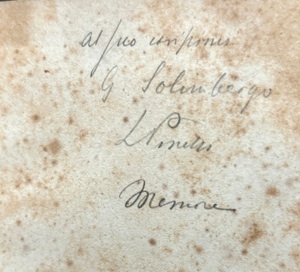 al suo
G. Solimbergo
L Pinelli
Memore